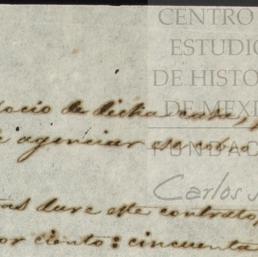 CENTRO
ESTUDIO
DE HISTO
DE MEXI
FUNDAC
Carlos S
ocio de dicha casa,
agenciar se cobro
as dure este contrato,
por ciento: cincuenta